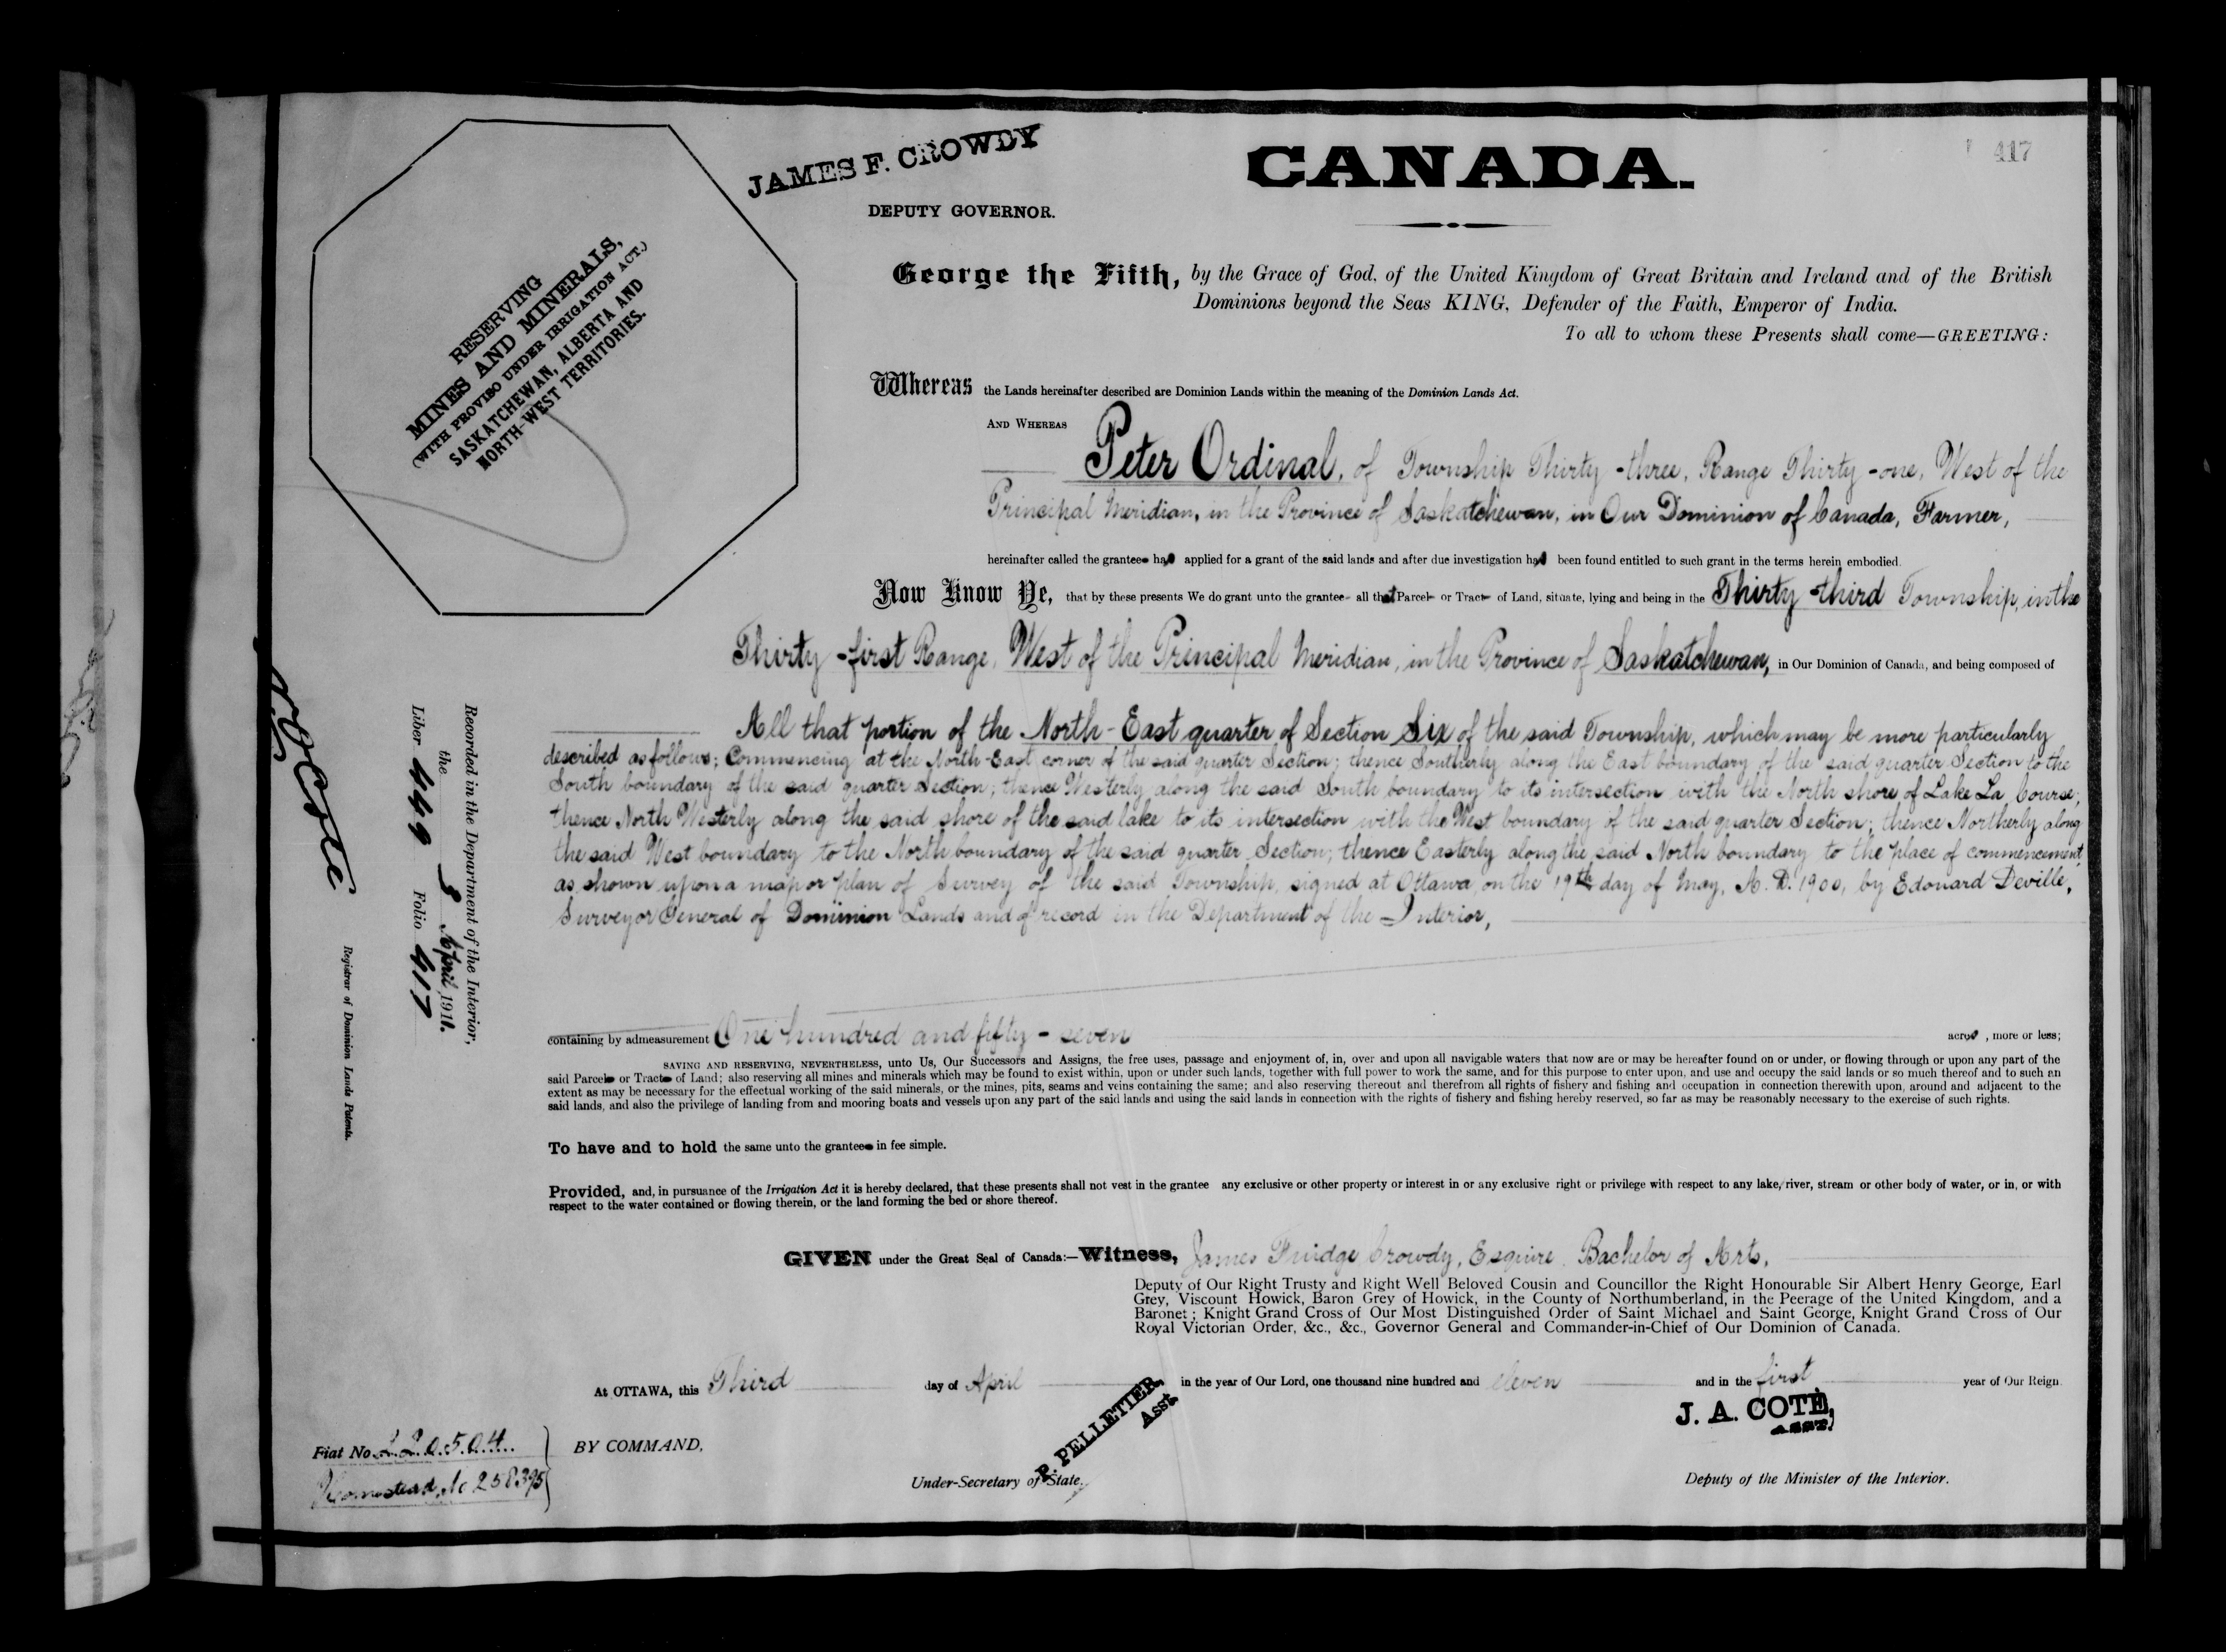 417
JAMES F. CROWDY
DEPUTY GOVERNOR.
CANADA.
RESERVING
MINES AND MINERALS,
(WITH PROVISO UNDER IRRIGATION ACT.)
SASKATCHEWAN, ALBERTA AND
NORTH-WEST TERRITORIES.
George the Fifth, by the Grace of God, of the United Kingdom of Great Britain and Ireland and of the British
Dominions beyond the Seas KING, Defender of the Faith, Emperor of India.
To all to whom these Presents shall come—GREETING:
Whereas the Lands hereinafter described are Dominion Lands within the meaning of the Dominion Lands Act.
AND WHEREAS
Peter Ordinal, of Township Thirty-three, Range Thirty-one, West of the
Principal Meridian, in the Province of Saskatchewan, in Our Dominion of Canada, Farmer,
hereinafter called the grantee has applied for a grant of the said lands and after due investigation has been found entitled to such grant in the terms herein embodied.
Now Know Ye, that by these presents We do grant unto the grantee all that Parcel or Tract of Land, situate, lying and being in the Thirty-third Township, in the
Thirty-first Range, West of the Principal Meridian, in the Province of Saskatchewan, in Our Dominion of Canada, and being composed of
All that portion of the North-East quarter of Section Six of the said Township, which may be more particularly
described as follows; Commencing at the North-East corner of the said quarter Section; thence Southerly along the East boundary of the said quarter Section to the
South boundary of the said quarter Section; thence Westerly along the said South boundary to its intersection with the North shore of Lake La Course;
thence North Westerly along the said shore of the said lake to its intersection with the West boundary of the said quarter Section; thence Northerly along
the said West boundary to the North boundary of the said quarter Section; thence Easterly along the said North boundary to the place of commencement,
as shown upon a map or plan of Survey of the said Township, signed at Ottawa, on the 19th day of May, A.D. 1900, by Edouard Deville,
Surveyor General of Dominion Lands and of record in the Department of the Interior,
containing by admeasurement One hundred and fifty-seven acres, more or less;
SAVING AND RESERVING, NEVERTHELESS, unto Us, Our Successors and Assigns, the free uses, passage and enjoyment of, in, over and upon all navigable waters that now are or may be hereafter found on or under, or flowing through or upon any part of the
said Parcel or Tract of Land; also reserving all mines and minerals which may be found to exist within, upon or under such lands, together with full power to work the same, and for this purpose to enter upon, and use and occupy the said lands or so much thereof and to such an
extent as may be necessary for the effectual working of the said minerals, or the mines, pits, seams and veins containing the same; and also reserving thereout and therefrom all rights of fishery and fishing and occupation in connection therewith upon, around and adjacent to the
said lands, and also the privilege of landing from and mooring boats and vessels upon any part of the said lands and using the said lands in connection with the rights of fishery and fishing hereby reserved, so far as may be reasonably necessary to the exercise of such rights.
To have and to hold the same unto the grantee in fee simple.
Provided, and, in pursuance of the Irrigation Act it is hereby declared, that these presents shall not vest in the grantee any exclusive or other property or interest in or any exclusive right or privilege with respect to any lake, river, stream or other body of water, or in, or with
respect to the water contained or flowing therein, or the land forming the bed or shore thereof.
GIVEN under the Great Seal of Canada:—Witness, James Fluidge Crowdy, Esquire, Bachelor of Arts,
Deputy of Our Right Trusty and Right Well Beloved Cousin and Councillor the Right Honourable Sir Albert Henry George, Earl
Grey, Viscount Howick, Baron Grey of Howick, in the County of Northumberland, in the Peerage of the United Kingdom, and a
Baronet; Knight Grand Cross of Our Most Distinguished Order of Saint Michael and Saint George, Knight Grand Cross of Our
Royal Victorian Order, &c., &c., Governor General and Commander-in-Chief of Our Dominion of Canada.
At OTTAWA, this Third day of April in the year of Our Lord, one thousand nine hundred and eleven and in the first year of Our Reign
BY COMMAND,
P. PELLETIER,
Asst.
Under-Secretary of State.
J. A. COTÉ,
ASST.
Deputy of the Minister of the Interior.
Fiat No 220504
Homestead, No 258395
Recorded in the Department of the Interior,
the 8 April, 1911.
Liber 449 Folio 417
N. O. Coté
Registrar of Dominion Lands Patents.